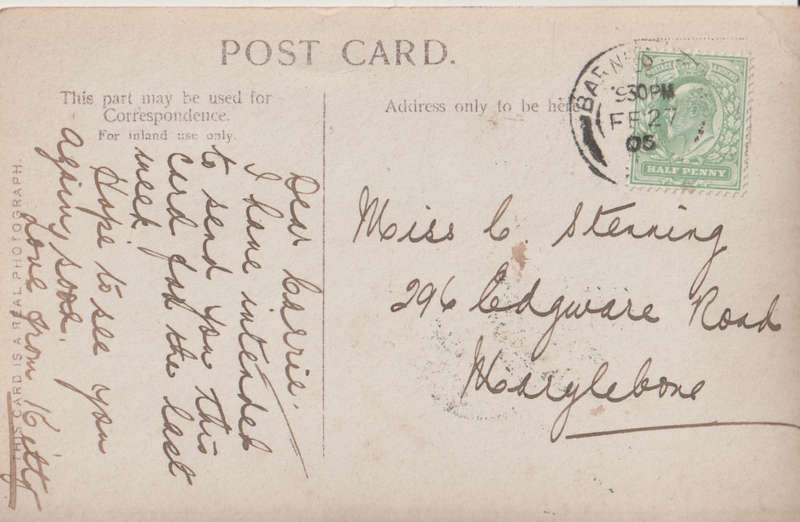 POST CARD.
This part may be used for
Correspondence.
For inland use only.
Address only to be here
BARN
530PM
FE 27
05
HALF PENNY
Dear Carrie.
I have intended
to send you this
card for the last
week
Hope to see you
again soon.
Love from Kitty
Miss C. Stenning
296 Edgware Road
Marylebone
THIS CARD IS A REAL PHOTOGRAPH.